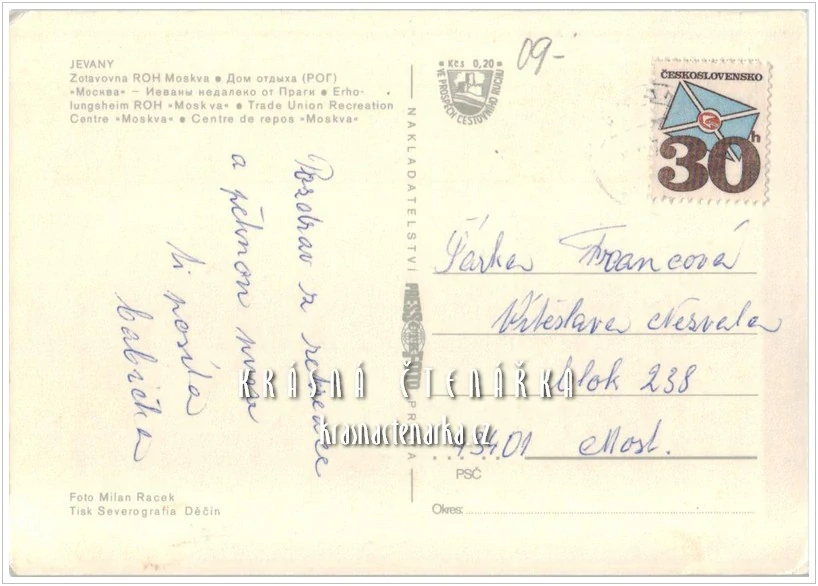 JEVANY
Zotavovna ROH Moskva ● Дом отдыха (РОГ)
»Москва« – Иеваны недалеко от Праги ● Erho-
lungsheim ROH »Moskva« ● Trade Union Recreation
Centre »Moskva« ● Centre de repos »Moskva«
Pozdrav z rekreace
a pěknou pusu
ti posílá
babička
Foto Milan Racek
Tisk Severografia Děčín
NAKLADATELSTVÍ
PRAHA
Kčs 0,20
VE PROSPĚCH CESTOVNÍHO RUCHU
09-
ČESKOSLOVENSKO
30h
Šárka Francová
Vítěslava Nezvala
blok 238
43401 Most.
PSČ
Okres:
KRÁSNÁ ČTENÁŘKA
krasnactenarka.cz